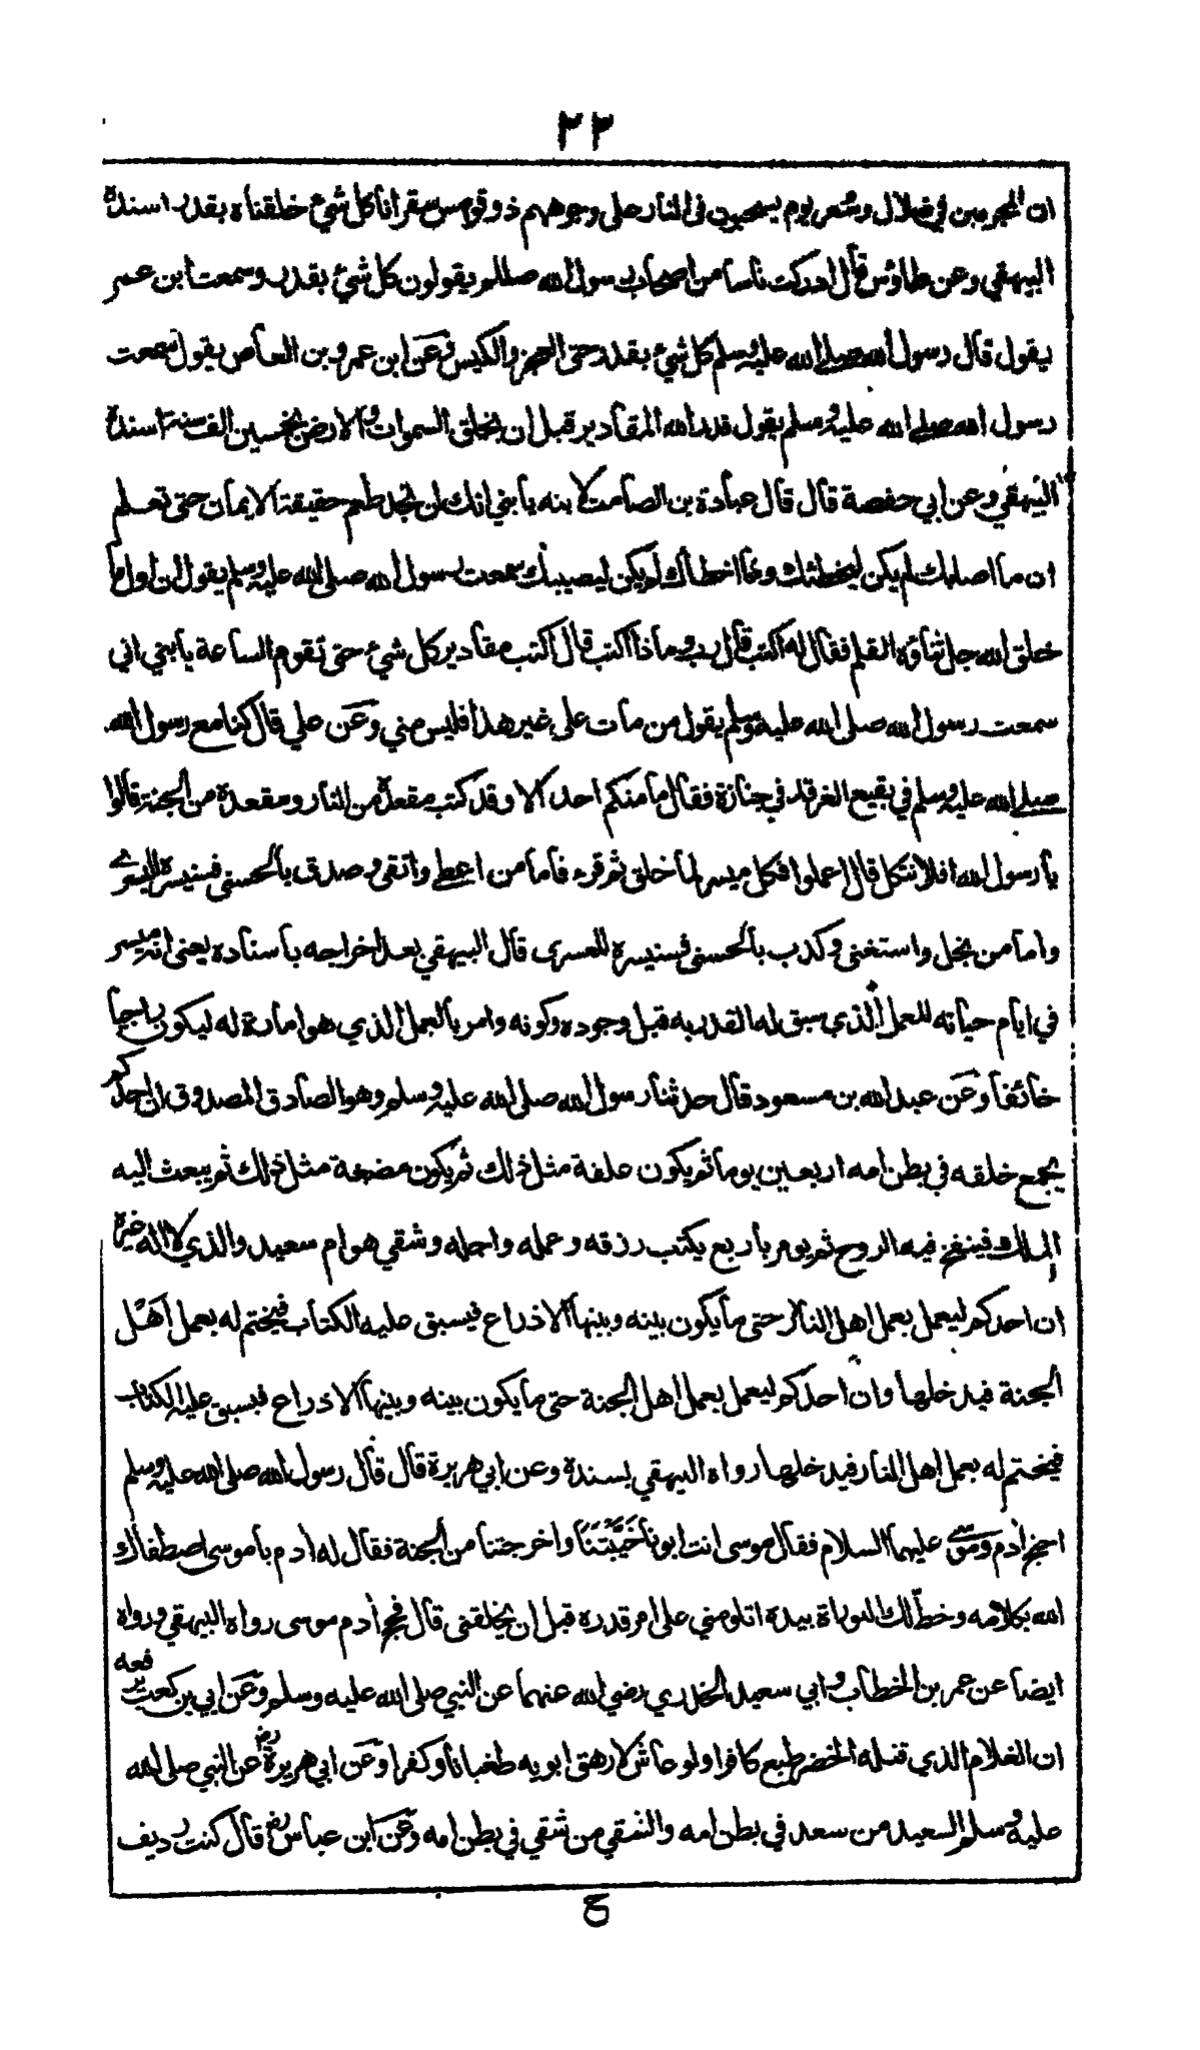 ٢٣
ان المجرمين في ضلال وسعر يوم يسحبون في النار على وجوههم ذوقوا مس سقر انا كل شيء خلقناه بقدر اسنده
البيهقي وعن طاؤس قال ادركت ناسا من اصحاب رسول الله صللم يقولون كل شيء بقدر وسمعت ابن عمر
يقول قال رسول الله صلى الله عليه وسلم كل شيء بقدر حتى العجز والكيس وعن ابن عمرو بن العاص يقول سمعت
رسول الله صلى الله عليه وسلم يقول قدر الله المقادير قبل ان يخلق السموات والارض بخمسين الف سنة اسنده
البيهقي وعن ابي حفصة قال قال عبادة بن الصامت لابنه يا بني انك لن تجد طعم حقيقة الايمان حتى تعلم
ان ما اصابك لم يكن ليخطئك وما اخطأك لم يكن ليصيبك سمعت رسول الله صلى الله عليه وسلم يقول ان اول ما
خلق الله جل ثناؤه القلم فقال له اكتب قال رب وماذا اكتب قال اكتب مقادير كل شيء حتى تقوم الساعة يا بني اني
سمعت رسول الله صلى الله عليه وسلم يقول من مات على غير هذا فليس مني وعن علي قال كنا مع رسول الله
صلى الله عليه وسلم في بقيع الغرقد في جنازة فقال ما منكم احد الا وقد كتب مقعده من النار ومقعده من الجنة قالوا
يا رسول الله افلا نتكل قال اعملوا فكل ميسر لما خلق ثم قرء فاما من اعطى واتقى وصدق بالحسنى فسنيسره لليسرى
واما من بخل واستغنى وكذب بالحسنى فسنيسره للعسرى قال البيهقي بعد اخراجه باسناده يعنى انه ميسر
في ايام حياته للعمل الذي سبق له القدر به قبل وجوده وكونه وامر بالعمل الذي هو امارة له ليكون راجيا
خائفا وعن عبد الله بن مسعود قال حدثنا رسول الله صلى الله عليه وسلم وهو الصادق المصدوق ان احدكم
يجمع خلقه في بطن امه اربعين يوما ثم يكون علقة مثل ذلك ثم يكون مضغة مثل ذلك ثم يبعث اليه
الملك فينفخ فيه الروح ثم يومر باربع يكتب رزقه وعمله واجله وشقي هو ام سعيد والذي لا اله غيره
ان احدكم ليعمل بعمل اهل النار حتى ما يكون بينه وبينها الا ذراع فيسبق عليه الكتاب فيختم له بعمل اهل
الجنة فيدخلها وان احدكم ليعمل بعمل اهل الجنة حتى ما يكون بينه وبينها الا ذراع فيسبق عليه الكتاب
فيختم له بعمل اهل النار فيدخلها رواه البيهقي بسنده وعن ابي هريرة قال قال رسول الله صلى الله عليه وسلم
احتج آدم وموسى عليهما السلام فقال موسى انت ابونا خَيَّبْتَنَا واخرجتنا من الجنة فقال له آدم يا موسى اصطفاك
الله بكلامه وخط لك التوراة بيده اتلومني على امر قدره قبل ان يخلقني قال فحج آدم موسى رواه البيهقي ورواه
ايضا عن عمر بن الخطاب وابي سعيد الخدري رضي الله عنهما عن النبي صلى الله عليه وسلم وعن ابي بن كعب يرفعه
ان الغلام الذي قتله الخضر طبع كافرا ولو عاش لارهق ابويه طغيانا وكفرا وعن ابي هريرة رض عن النبي صلى الله
عليه وسلم السعيد من سعد في بطن امه والشقي من شقي في بطن امه وعن ابن عباس رض قال كنت رديف